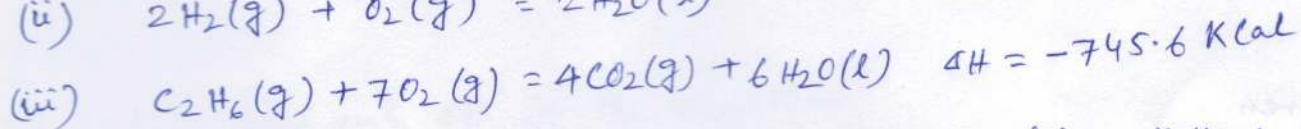 (ii) 2H₂(g) + O₂(g) = 2H₂O(l)
(iii) C₂H₆(g) + 7O₂(g) = 4CO₂(g) + 6H₂O(l) ΔH = -745.6 KCal